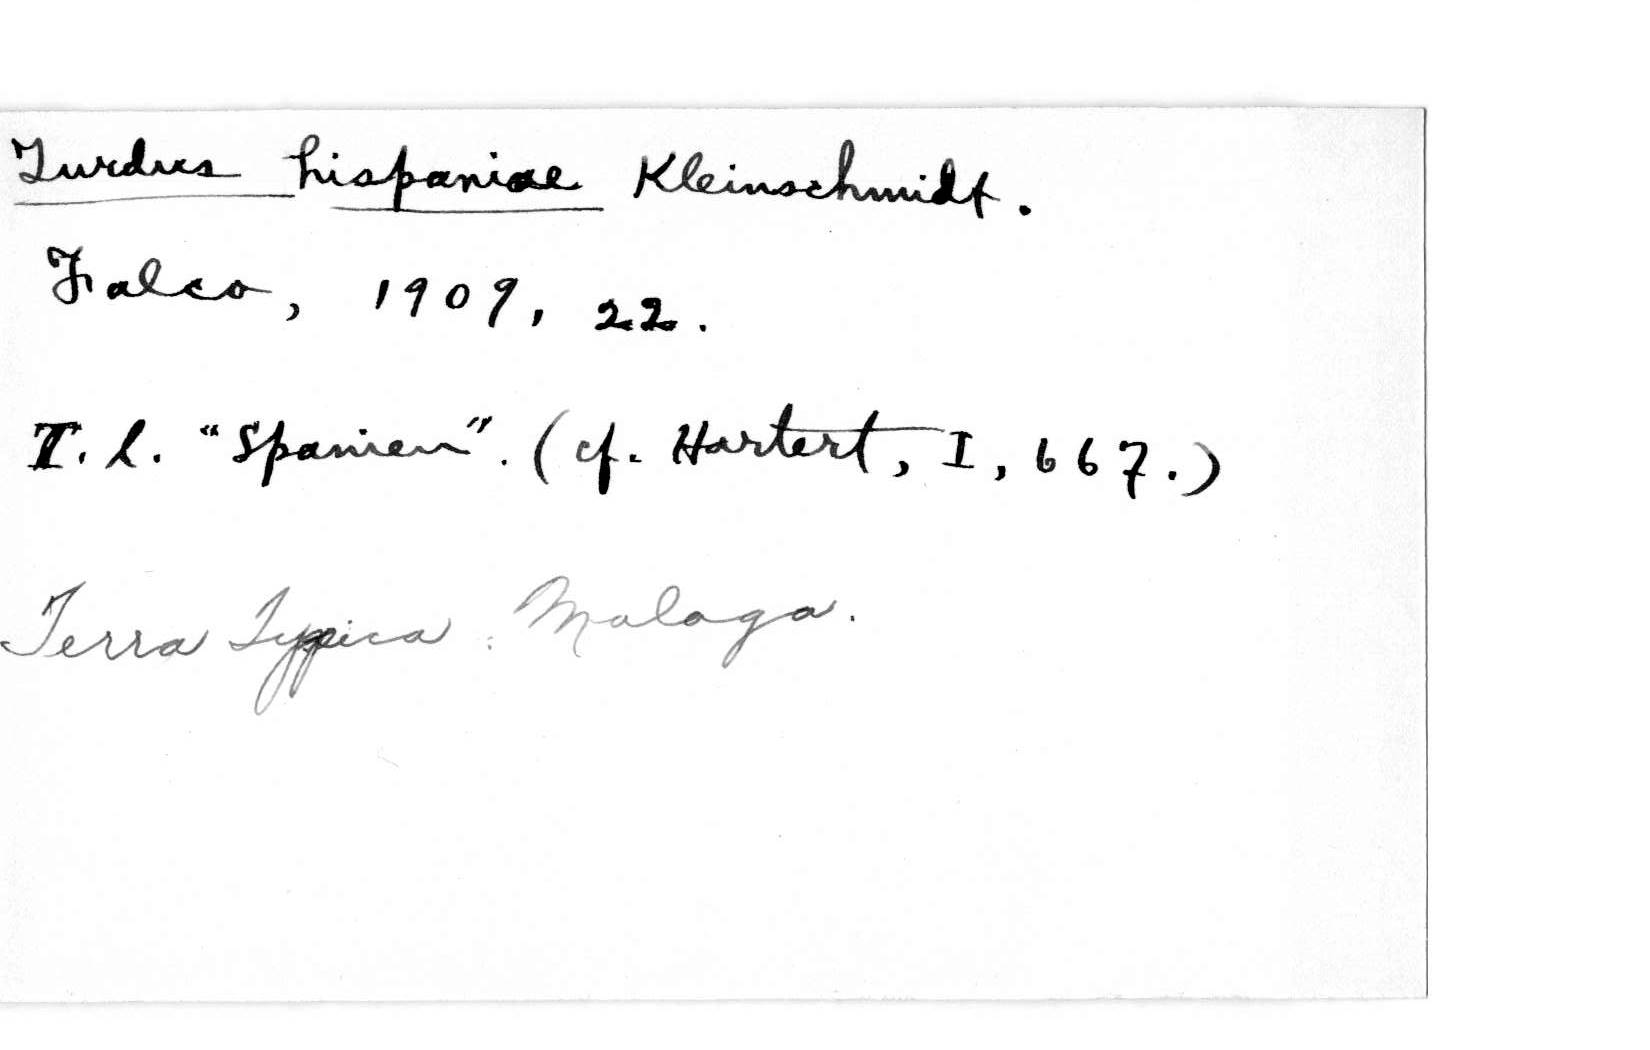 Turdus hispaniae Kleinschmidt.
Falco, 1909, 22.
T. l. "Spanien". (cf. Hartert, I, 667.)
Terra Typica: Malaga.